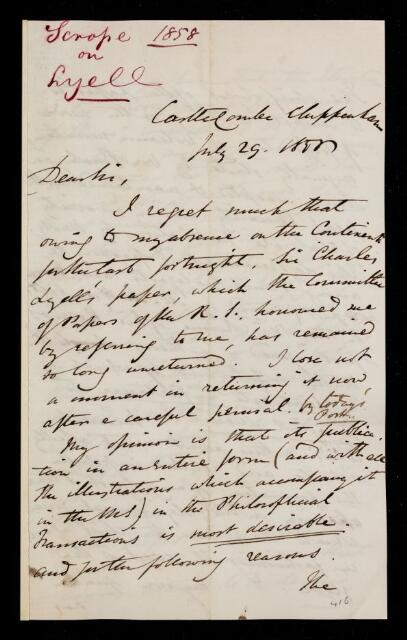 Scrope 1858
on
Lyell
Castle Combe Chippenham
July 29. 1858
Dear Sir,
I regret much that
owing to my absence on the Continent
for the last fortnight, Sir Charles
Lyell's paper, which the Committee
of Papers of the R. S. honoured me
by referring to me, has remained
so long unreturned. I lose not
a moment in returning it now
after a careful perusal. by today's
Post.
My opinion is that its publica-
tion in an entire form (and with all
the illustrations which accompany it
in the MS) in the Philosophical
Transactions is most desirable.
and for the following reasons.
The
416